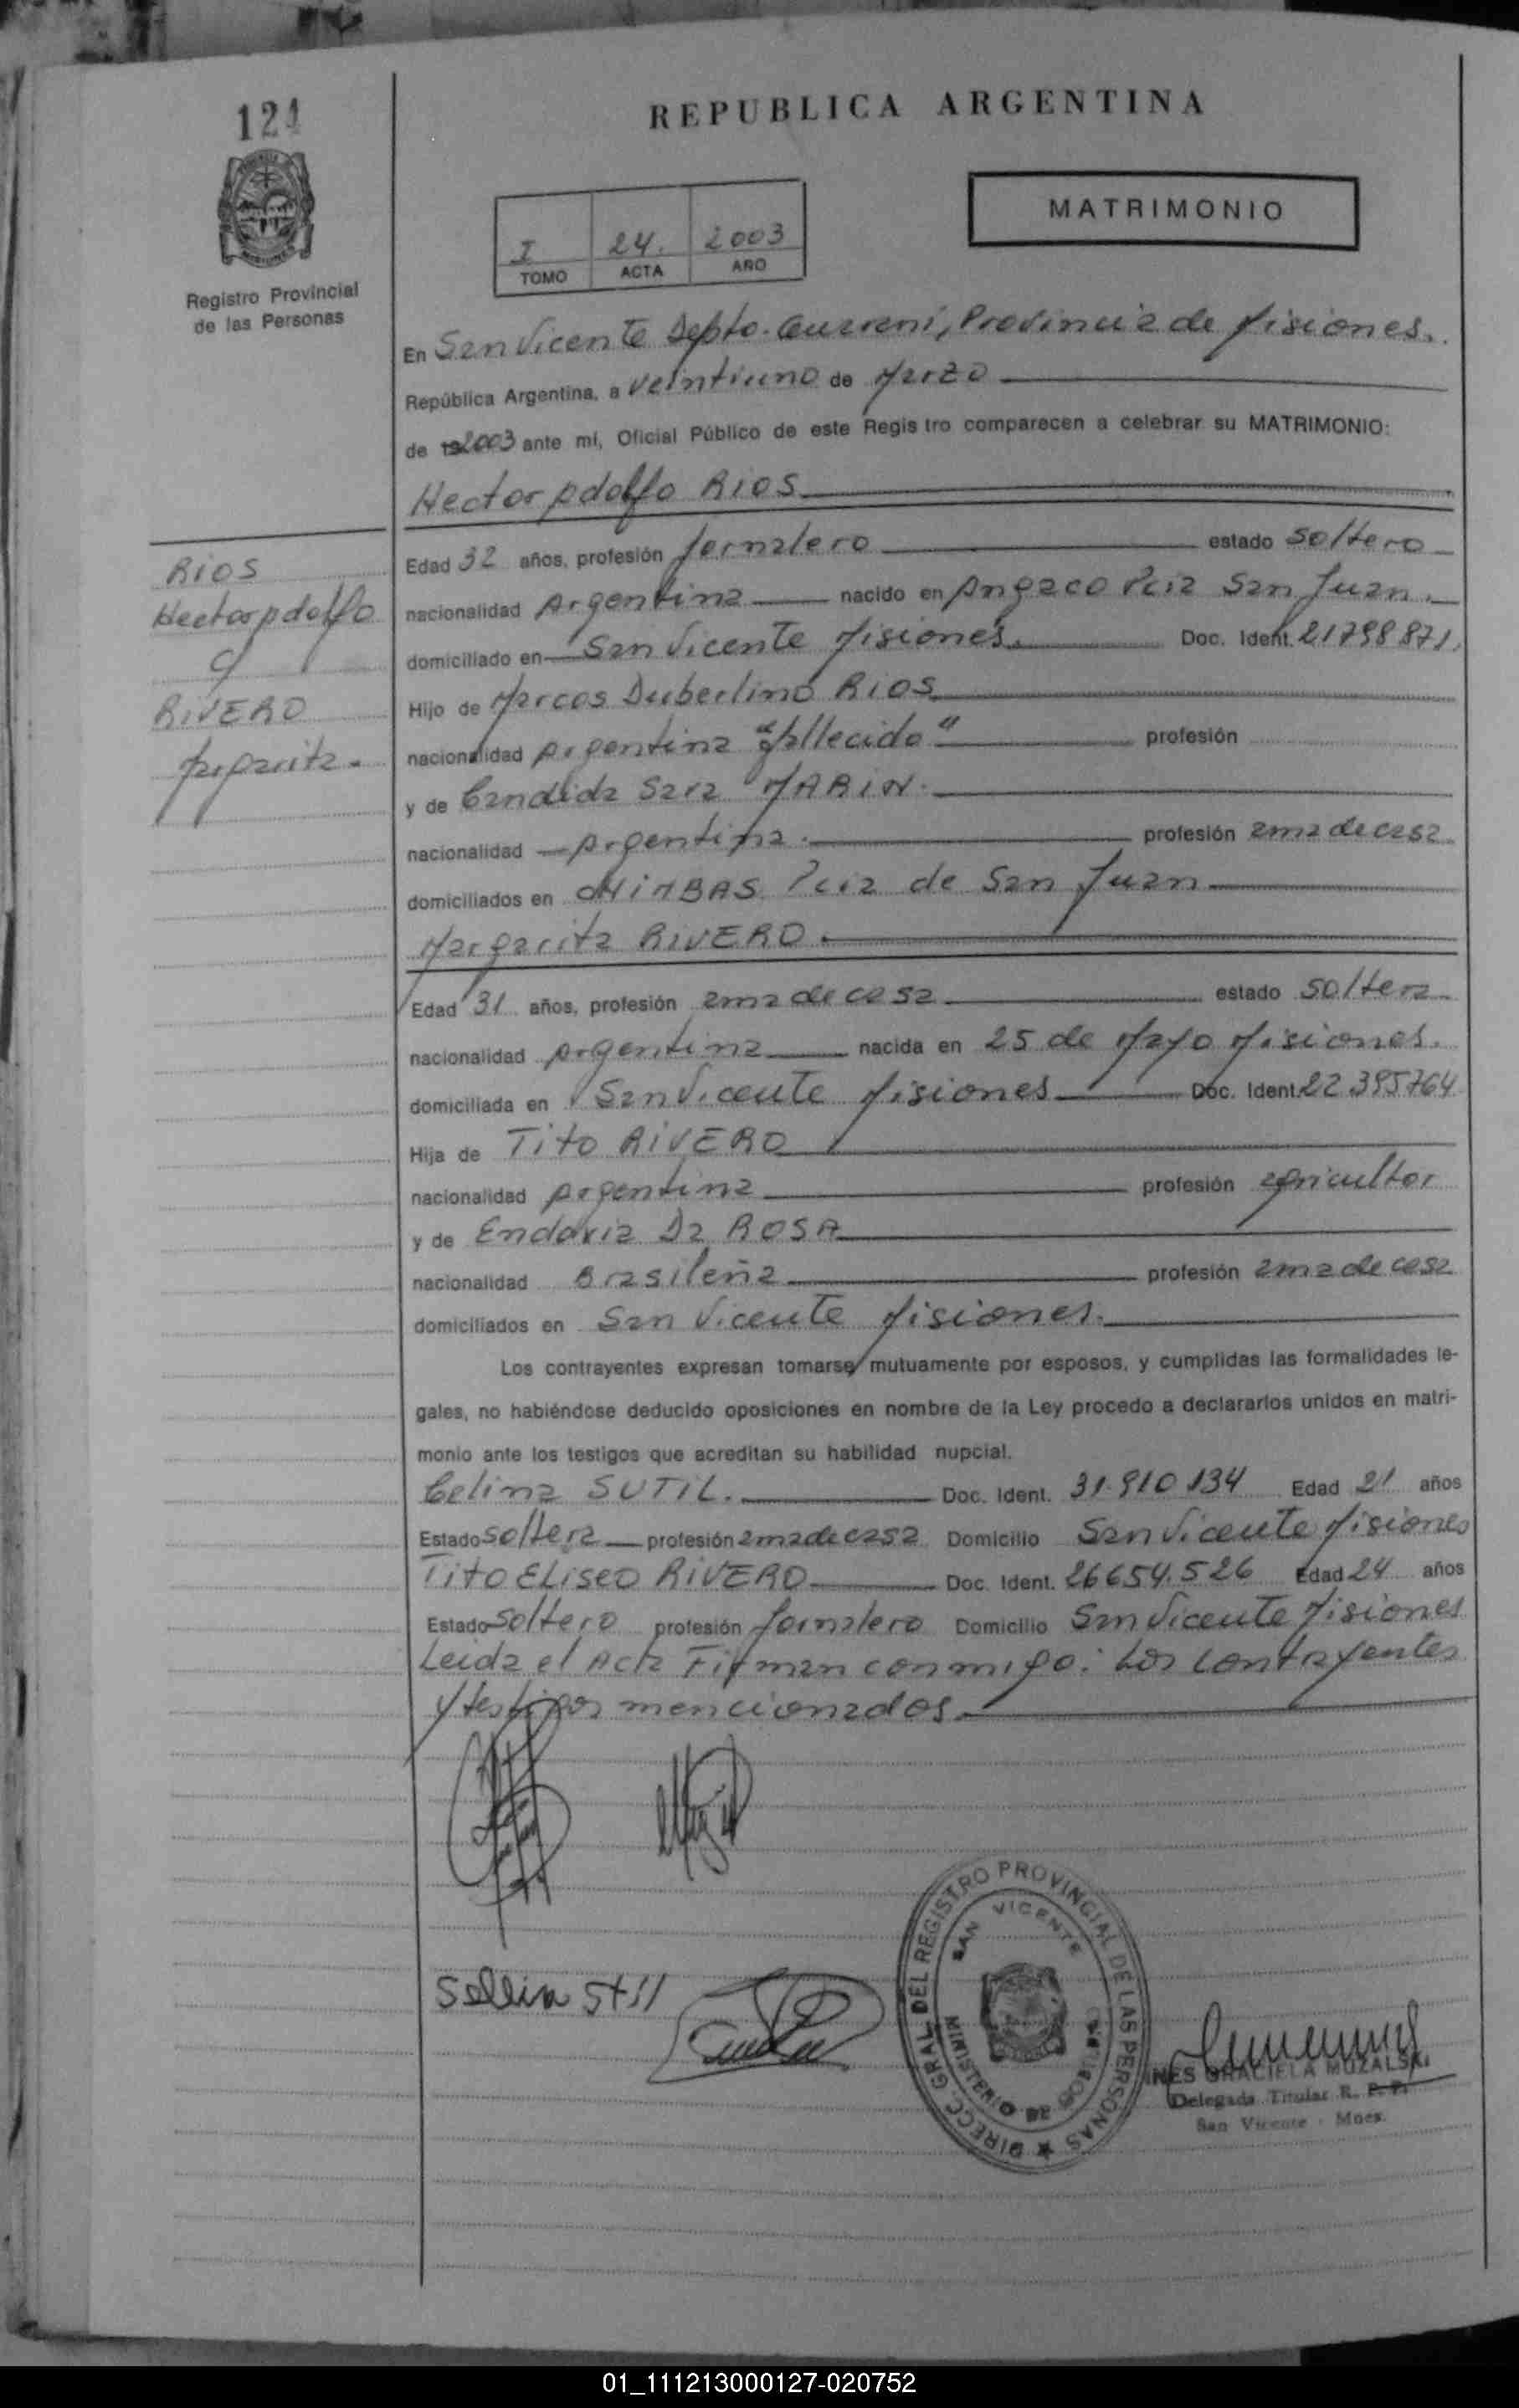 124
REPUBLICA ARGENTINA
MATRIMONIO
I 24. 2003
TOMO ACTA AÑO
Registro Provincial
de las Personas
En San Vicente Depto. Guarani, Provincia de Misiones.
República Argentina, a veintiuno de Marzo
de 2003 ante mí, Oficial Público de este Registro comparecen a celebrar su MATRIMONIO:
Hector Adolfo RIOS
RIOS
Hector Adolfo
c/
RIVERO
Margarita.
Edad 32 años, profesión Jornalero estado Soltero
nacionalidad Argentina nacido en Angaco Pcia San Juan.
domiciliado en San Vicente Misiones. Doc. Ident. 21798871.
Hijo de Marcos Duberlino RIOS
nacionalidad Argentina "fallecido" profesión
y de Candida Sara MARIN.
nacionalidad Argentina. profesión ama de casa
domiciliados en CHIMBAS Pcia de San Juan
Margarita RIVERO.
Edad 31 años, profesión ama de casa estado Soltera
nacionalidad Argentina nacida en 25 de Mayo Misiones.
domiciliada en San Vicente Misiones Doc. Ident. 22395764
Hija de Tito RIVERO
nacionalidad Argentina profesión agricultor
y de Endovia Da ROSA
nacionalidad Brasileña profesión ama de casa
domiciliados en San Vicente Misiones.
Los contrayentes expresan tomarse mutuamente por esposos, y cumplidas las formalidades le-
gales, no habiéndose deducido oposiciones en nombre de la Ley procedo a declararlos unidos en matri-
monio ante los testigos que acreditan su habilidad nupcial.
Celina SUTIL. Doc. Ident. 31.910.134 Edad 21 años
Estado Soltera profesión ama de casa Domicilio San Vicente Misiones
Tito ELISEO RIVERO Doc. Ident. 26654.526 Edad 24 años
Estado Soltero profesión Jornalero Domicilio San Vicente Misiones
Leida el Acta Firman conmigo: Los contrayentes
y testigos mencionados.
DIRECC. GRAL. DEL REGISTRO PROVINCIAL DE LAS PERSONAS
SAN VICENTE
MINISTERIO DE GOBIERNO
INES GRACIELA MUZALSKI
Delegada Titular R. P. P.
San Vicente - Mnes.
01_111213000127-020752